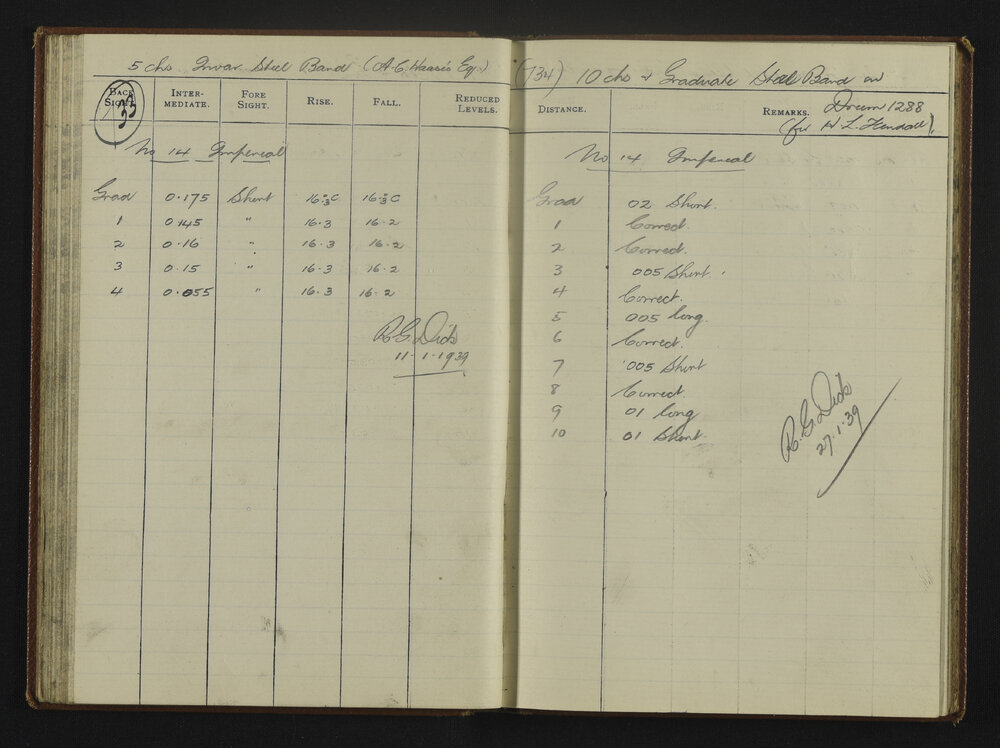 5 chs. Invar Steel Band (A.C. Haase's Esq.)
BACK SIGHT. INTER-MEDIATE. FORE SIGHT. RISE. FALL. REDUCED LEVELS.
33
No 14 Imperial
Grad 0.175 Short 16.3 C 16.3 C
1 0.145 " 16.3 16.2
2 0.16 " 16.3 16.2
3 0.15 " 16.3 16.2
4 0.055 " 16.3 16.2
R.G. Dick
11-1-1939
(134) 10 chs + Graduate Steel Band on
DISTANCE. REMARKS. Drum 1288
(for H L Kendall).
No 14 Imperial
Grad 02 Short.
1 Correct.
2 Correct.
3 005 Short.
4 Correct.
5 005 Long.
6 Correct.
7 .005 Short
8 Correct.
9 01 Long
10 01 Short.
R.G. Dick
27.1.39